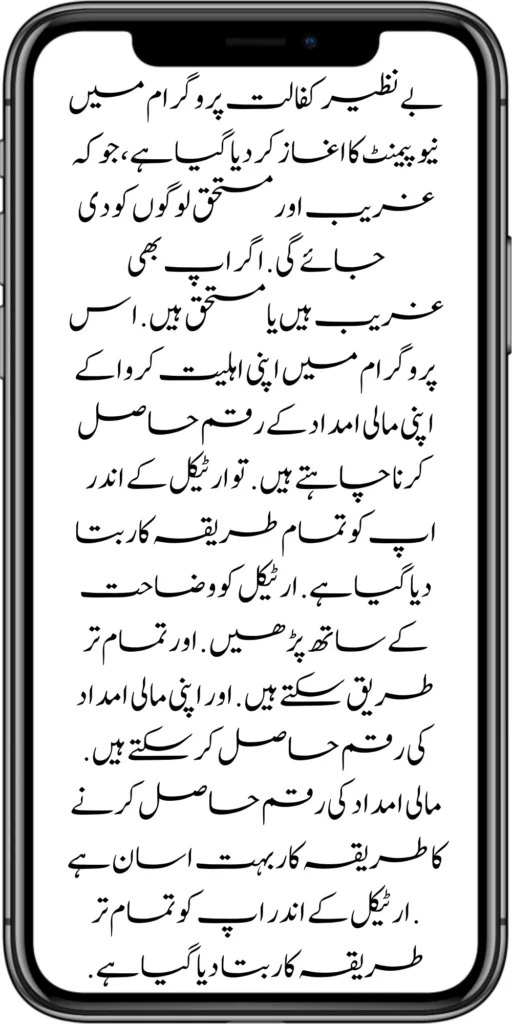 بے نظیر کفالت پروگرام میں
نیو پیمنٹ کا اغاز کر دیا گیا ہے، جو کہ
غریب اور مستحق لوگوں کو دی
جائے گی. اگر اپ بھی
غریب ہیں یا مستحق ہیں. اس
پروگرام میں اپنی اہلیت کروا کے
اپنی مالی امداد کے رقم حاصل
کرنا چاہتے ہیں. تو ارٹیکل کے اندر
اپ کو تمام طریقہ کار بتا
دیا گیا ہے. ارٹیکل کو وضاحت
کے ساتھ پڑھیں. اور تمام تر
طریق سکتے ہیں. اور اپنی مالی امداد
کی رقم حاصل کر سکتے ہیں.
مالی امداد کی رقم حاصل کرنے
کا طریقہ کار بہت اسان ہے
. ارٹیکل کے اندر اپ کو تمام تر
طریقہ کار بتا دیا گیا ہے.